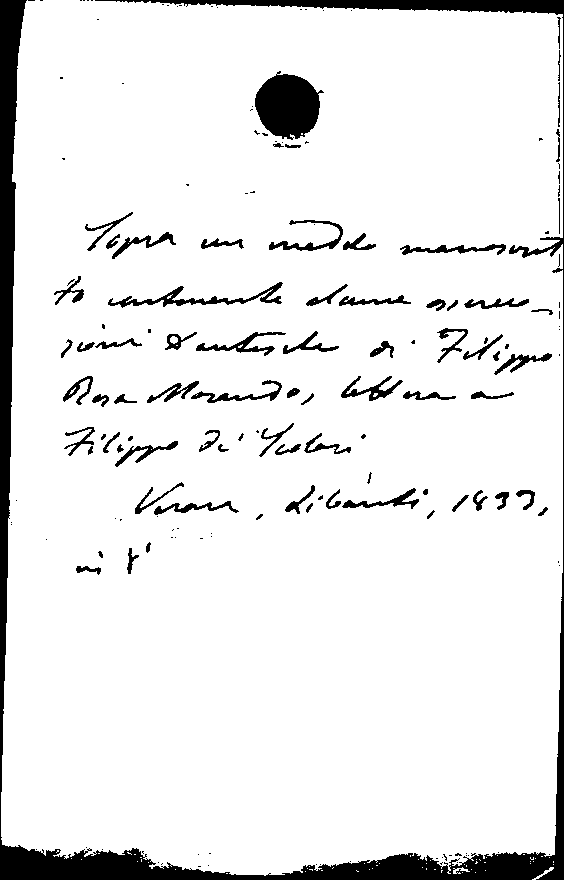 Sopra un inedito manoscrit
to contenente alcune osserva-
zioni Dantesche di Filippo
Rosa Morando, lettera a
Filippo di Scolari
Verona, Libanti, 1833,
in 8°